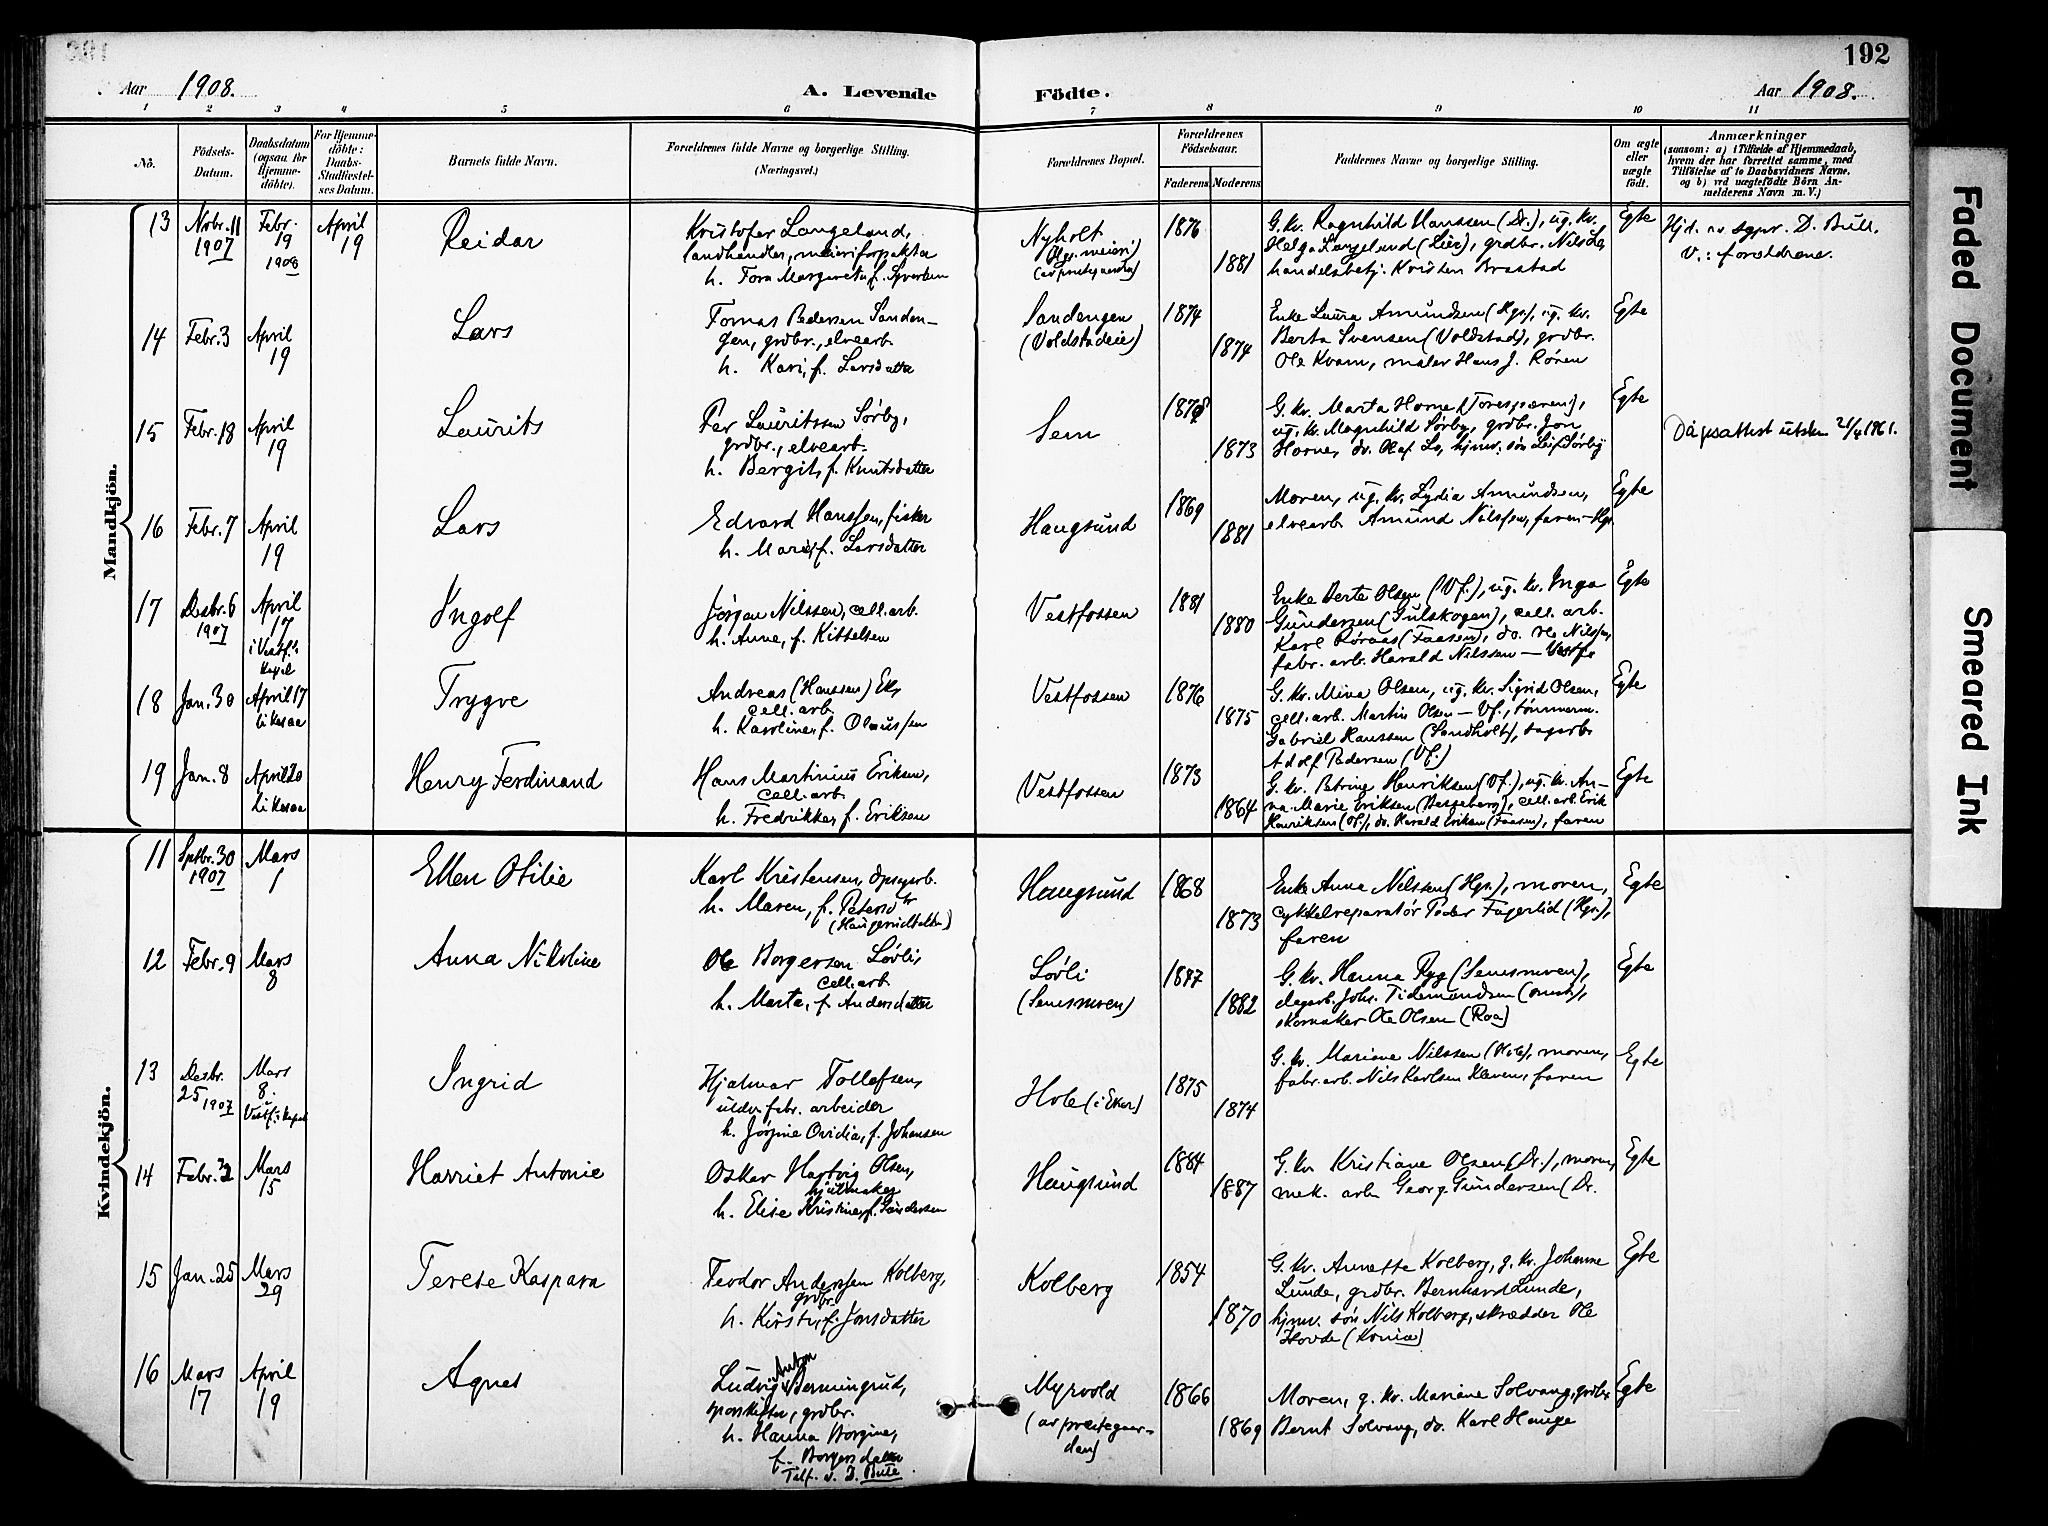 192
Aar 1908.
A. Levende Födte.
Aar 1908.
1 2 3 4 5 6 7 8 9 10 11
No.
Födsels-Datum.
Daabsdatum (ogsaa for Hjemme-döbte).
For Hjemme-döbte: Daabs-Stadfæstel-ses Datum.
Barnets fulde Navn.
Forældrenes fulde Navne og borgerlige Stilling. (Næringsvei.)
Forældrenes Bopæl.
Forældrenes Födselsaar.
Faderens. Moderens.
Faddernes Navne og borgerlige Stilling.
Om ægte eller uægte födt.
Anmærkninger
(saasom: a) i Tilfælde af Hjemmedaab, hvem der har forrettet samme, med Tilföielse af to Daabsvidners Navne, og b) ved uægtefödte Börn An-melderens Navn m. V.)
Mandkjön.
13 Novbr. 11 1907 Febr. 19 1908 April 19 Reidar
Kristofer Langeland,
landhandler, meieriforpakter
h. Tora Margareta f. Syvertsen
Nyholt
1876 1881
G. kv. Ragnhild Hanssen (Dr.), ug. kv.
Helga Langelund (Lier), grdbr. Nils do,
handelsbetj. Kristen Brastad
Egte
Hjd. av sgpr. D. Bull.
V.: forældrene.
14 Febr. 3 April 19 Lars
Tomas Pedersen Sanden-
gen, grdbr., elvearb.
h. Kari, f. Larsdatter
Sandengen
(Voldstadeie)
1874 1874
Enke Laura Amundsen (Hgs), ug. kv.
Berta Svensen (Voldstad), grdbr.
Ole Kvam, maler Hans J. Røren
Egte
15 Febr. 18 April 19 Laurits
Per Lauritssen Sørby,
grdbr., elvearb.
h. Bergit, f. Knutsdatter
Sem
1873
G. kv. Marta Horne
ug. kv. Magnhild Sørby, grdbr. Jon
Horne, do. Olaf do, hjmv. søn Leif Sørby
Egte
Dåpsattest utskr. 21/4 1961.
16 Febr. 7 April 19 Lars
Edvard Hanssen, fisker
h. Marie, f. Larsdatter
Haugsund
1869 1881
Moren, ug. kv. Lydia Amundsen,
elvearb Amund Nilssen, faren – Hgs
Egte
17 Desbr. 6 1907 April 17 i Vestf.s kapel Ingolf
Jørgen Nilssen, cell. arb.
h. Anne, f. Kittelsen
Vestfossen
1881 1880
Enke Berte Olsen (Vf.), ug. kv. Inga
Gundersen (Gulskogen), cell. arb.
Karl Røraas (Faasen), do. Ole Nilssen,
fabr. arb. Harald Nilssen – Vestfs
Egte
18 Jan. 30 April 17 likesaa Trygve
Andreas (Hanssen) Ek,
cell. arb.
h. Karoline, f. Olaussen
Vestfossen
1876 1875
G. kv. Mina Olsen, ug. kv. Sigrid Olsen,
cell. arb. Martin Olsen – Vf., tømmerm.
Gabriel Hanssen (Sandholt), sagarb.
Adolf Pedersen (Vf.)
Egte
19 Jan. 8 April 20 likesaa Henry Ferdinand
Hans Martinius Eriksen,
cell. arb.
h. Fredrikke, f. Eriksen
Vestfossen
1873 1864
G. kv. Petrine Henriksen (Vf.), ug. kv. An-
na Marie Eriksen (Besseberg), cell. arb. Erik
Henriksen (Vf.), do. Harald Eriksen (Faasen), faren
Egte
Kvindekjön.
11 Septbr. 30 1907 Mars 1 Ellen Otilie
Karl Kristensen, dpsgarb.
h. Maren, f. Petersdtr
Haugsund
1868 1873
Enke Anna Nilssen (Hgs.), moren,
cykkelreparatør Peder Fagerlid (Hgs.),
faren
Egte
12 Febr. 9 Mars 8 Anna Nikoline
Ole Borgersen Løvli,
cell. arb
h. Marta, f. Andersdatter
Løvli
(Semsmoen)
1887 1882
G. kv. Hanna Ryg (Semsmoen),
dagarb. Johs. Tidemandsen
skomaker Ole Olsen (Roa)
Egte
13 Desbr. 25 1907 Mars 8. Vestf. s kapel Ingrid
Hjalmar Tollefsen,
uldv. fabr. arbeider
h. Jørgine Ovidia, f. Johansen
Hole (i Eker)
1875 1874
G. kv. Mariane Nilssen (Hole), moren,
fabr. arb. Nils Karlsen Kleven, faren
Egte
14 Febr. 2 Mars 15 Harriet Antonie
Oskar Hartvig Olsen,
hjulmaker
h. Elise Kristine, f. Gundersen
Haugsund
1884 1887
G. kv Kristiane Olsen (Dr.), moren,
mek. arb Georg Gundersen (Dr.
Egte
15 Jan. 25 Mars 29 Terese Kaspara
Teodor Anderssen Kolberg,
grdbr.
h. Kirsti, f. Jonsdatter
Kolberg
1854 1870
G. kv. Annette Kolberg, g. kv. Johanne
Lunde, grdbr. Bernhard Lunde,
hjmv. søn Nils Kolberg, skrædder Ole
Hovde
Egte
16 Mars 17 April 19 Agnes
Ludvig Anton Bermingrud,
sporskifter, grdbr.
h. Hanna Borgine,
f. Borgersdatter
Telf. v. D. Bull
Myrvold
(av prestegaar-
den)
1866 1869
Moren, g. kv. Mariane Solvang, grdbr
Bernt Solvang, do. Karl Hauge
Egte
Faded Document
Smeared Ink